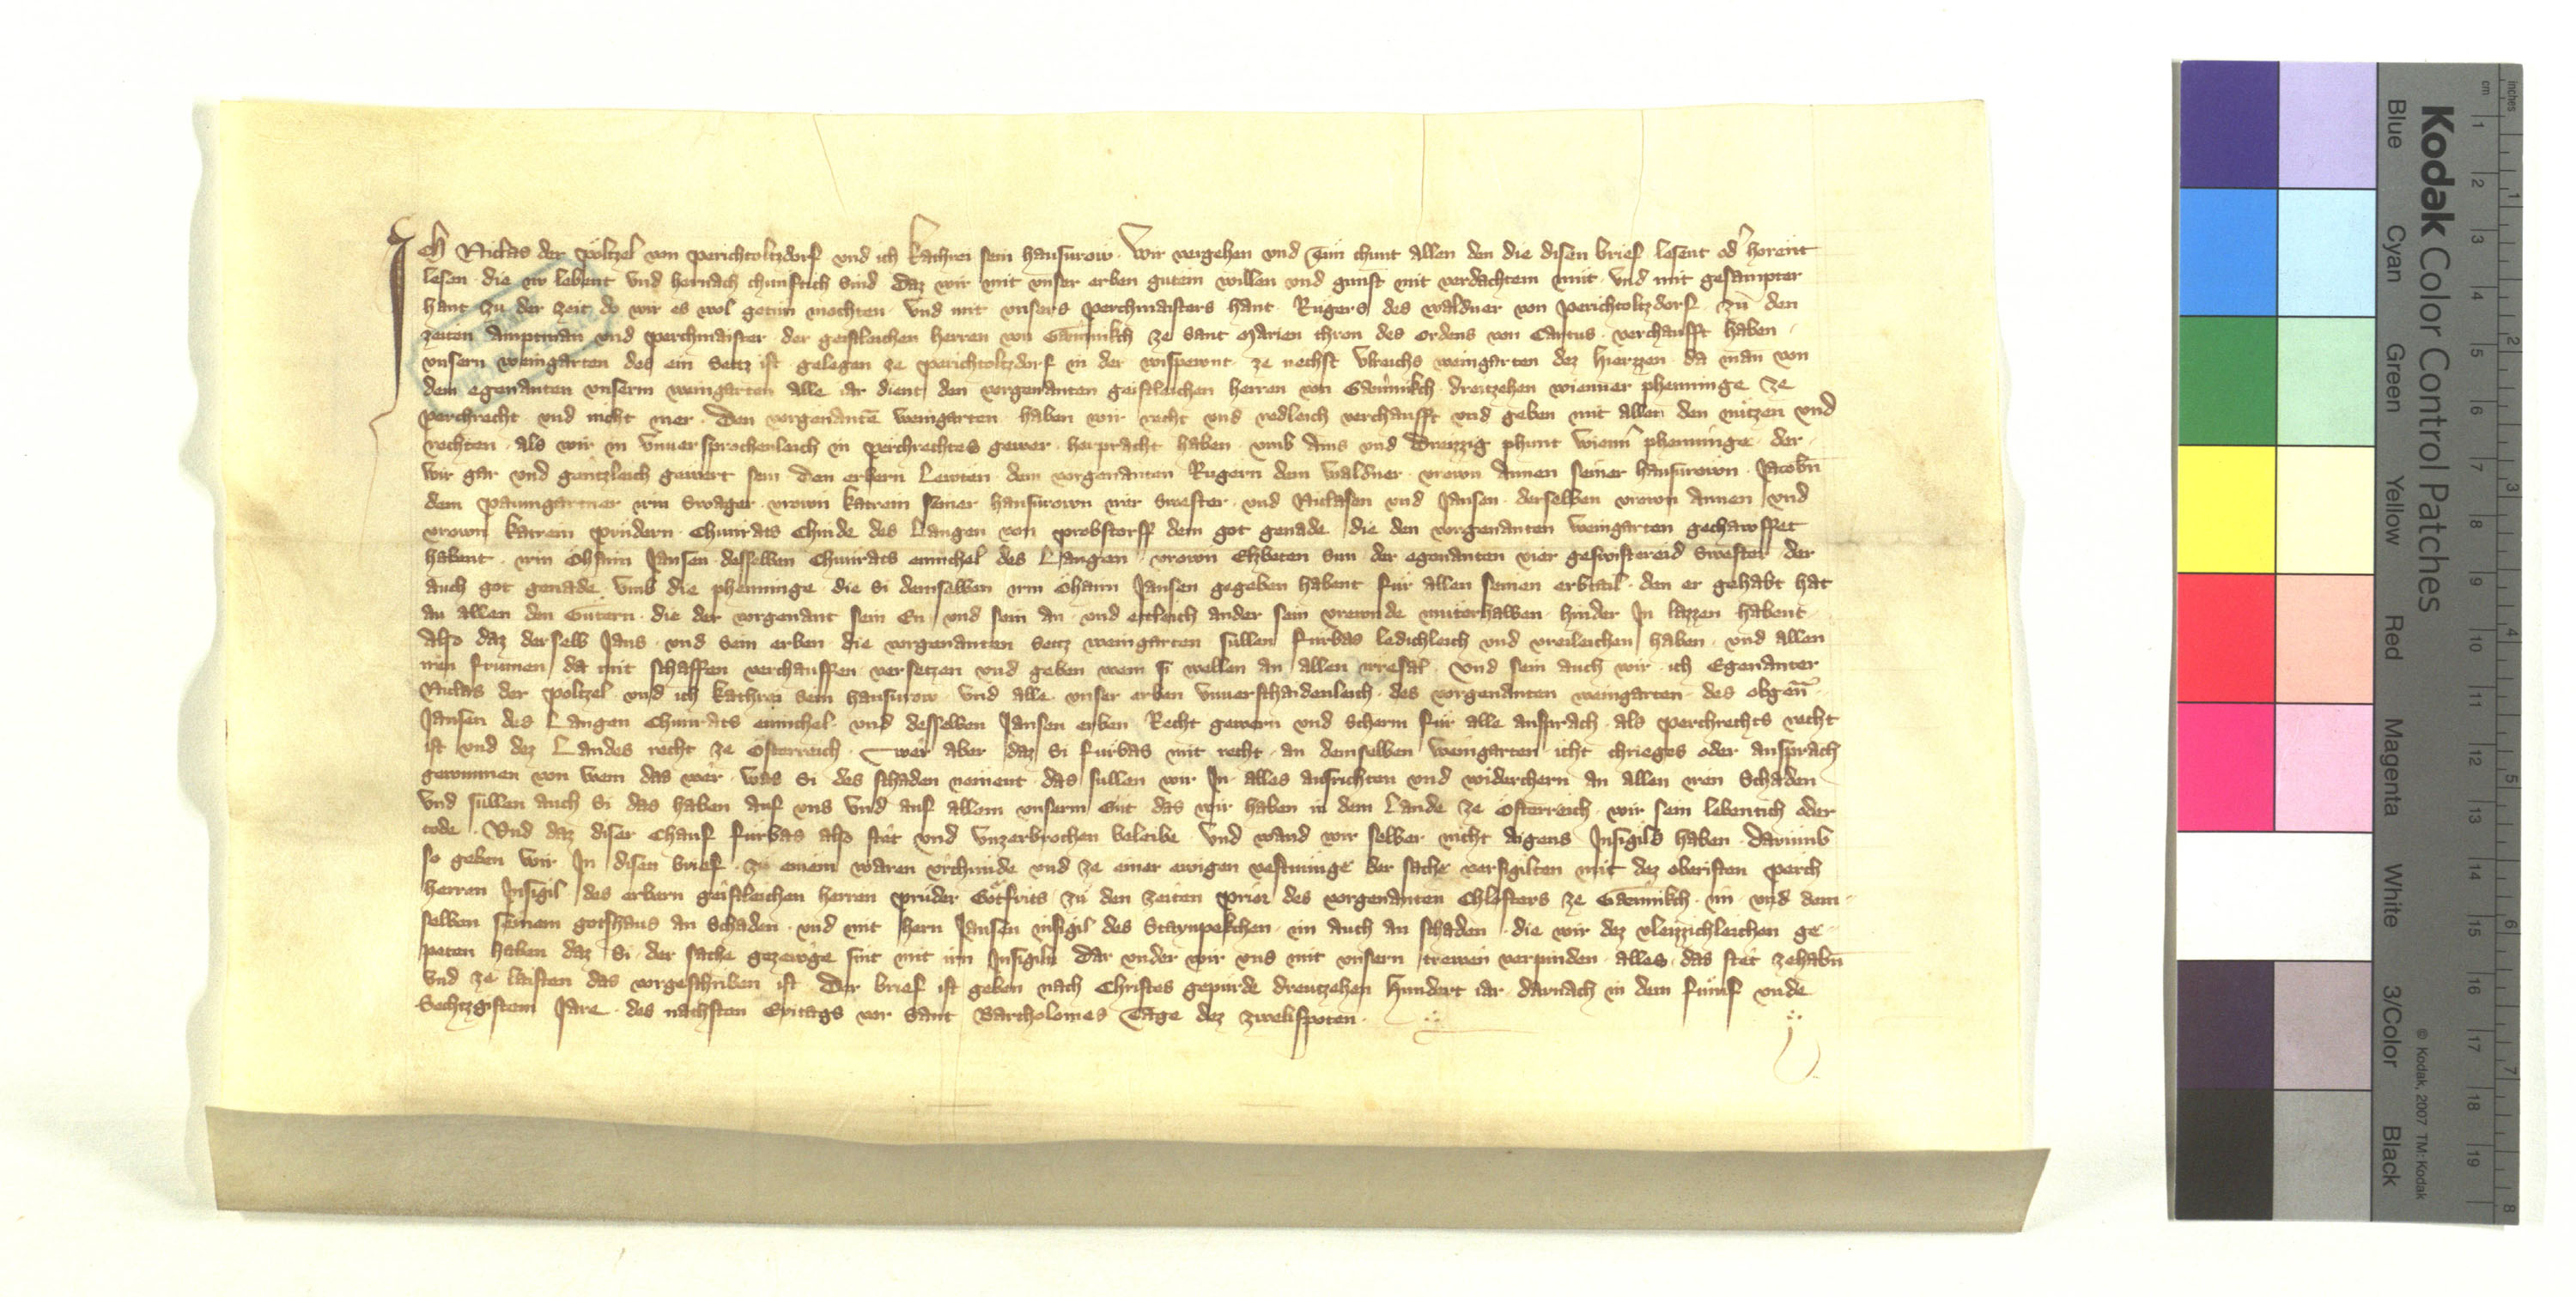 Ich Niclas der pöltzel von perichtoltzdorf vnd ich kathrei sein hausurow · Wir vergehen vnd Tün chunt allen den die disen brief lesent od' horent
lesen · die nv lebent vnd hernach chunftich sind Daz wir mit vnser erben gutem willen vnd gunst mit verdachtem mut · vnd mit gesampter
hant zu der zeit do wir es wol getun mochten · vnd mit vnsers perchmaisters hant · Rugers des waldner von perichtoltzdorf · zu den
zeiten Amptman vnd perchmaister · der geistleichen herren von Gaemnikch ze sant Marien thron des ordens von Cartus · verchaufft haben ·
vnsern weingarten des ein Setz ist · gelegen ze perichtoltzdorf in der wispewnt · ze nechst vlreichs weingarten dez hierzzen · da man von
dem egenanten vnserm weingarten alle iar dient den vorgenanten geistleichen herren von Gaemnikch · dreutzehen wienner phenninge ze
perchrecht · vnd nicht mer · Den vorgenantē weingarten · haben wir recht vnd redleich verchaufft vnd geben mit allen den nützen vnd
rechten · als wir in vnuersprochenleich in perchrechtes gewer · herpracht haben · vmb ains vnd Dreizzig phunt Wienn' phenninge · der ·
wir gar vnd gentzleich gewert sein Den erbern Lewten · dem vorgenanten Rugern dem waldner · vrown Annen seiner hausurown · Jacobn̄
dem paumgartner irm Swager · vrown katrein seiner hausurown irr Swester · vnd Niclasen vnd Jansen · derselben vrown Annen vnd
vrown katrein prüdern · Chunrats chinde des Langen von probstorff dem got genade · die den vorgenanten weingarten gechawffet
habent · irm Öhaim Jansen · desselben Chunrats eninchel des Langen · vrown Elzbeten sun der egenanten vier geswistereid Swester · der
auch got genade · vmb die phenninge · die si demselben irm öhaim Jansen gegeben habent für allen seinen erbtail · den er gehabt hat
an allen den Gütern · die der vorgenant sein En · vnd sein an · vnd etleich ander sein vrewnde muterhalben · hinder In lazzen habent ·
Also daz derselb Jans · vnd sein erben · die vorgenanten Setz weingarten süllen fürbas ledichleich vnd vreileichen haben · vnd allen
iren frumen da mit schaffen verchauffen · versetzen vnd geben wem si wellen an allen irresal · vnd sein auch wir · ich Egenanter
Niclas der pöltzel · vnd ich kathrei sein hausurow · vnd alle · vnser erben vnuerschaidenleich · des vorgenanten weingarten · des obgen̄
Jansen des Langen Chunrats eninchel · vnd desselben Jansen erben · Recht gewern vnd scherm für alle ansprach · als perchrechts recht
ist vnd dez Landes recht ze Österreich · wer aber daz si fürbas mit recht · an demselben weingarten icht chrieges oder ansprach
gewunnen von wem das wer · was si des schaden nement · das sullen wir In alles ausrichten vnd widerchern an allen iren Schaden ·
vnd süllen auch si das haben auf vns vnd auf allem vnserm Gut das wir haben in dem Lande ze Österreich · wir sein lebentich oder
tode · Vnd daz diser Chauf fürbas also stet vnd vnzerbrochen beleibe · vnd wand wir selber nicht aigens Insigils haben · Darumb
so geben wir In disen brief · zu einem waren vrchunde vnd ze einer ewigen vestnunge der sache versigilten mit dez obristen perch
herren Insigil · des erbern geistleichen herren pruder Götfrits · zu den zeiten prior des vorgenanten Chlosters ze Gaemnikch · im vnd dem ·
selben seinem gotshaus an Schaden · vnd mit hern Jansen insigil des Staynpekchen · im auch an schaden · die wir dez vleizzichleichen ge ·
peten haben daz si · der sache gezewge sint mit irn Insigiln Dar vnder wir vns mit vnsern trewen verpinden · alles das stet zehabn̄
vnd ze laisten das vorgeschriben ist · Der brief ist geben nach Christes gepurde dreutzehen Hundert iar · darnach in dem fumf vnde
Sechtzgistem Jare · des nachsten Eritags vor Sant Bartholomes Tage dez zwelifpoten ·
Kodak Color Control Patches
Blue Cyan Green Yellow Red Magenta White 3/Color Black
© Kodak, 2007 TM: Kodak
inches 1 2 3 4 5 6 7 8
cm 1 2 3 4 5 6 7 8 9 10 11 12 13 14 15 16 17 18 19